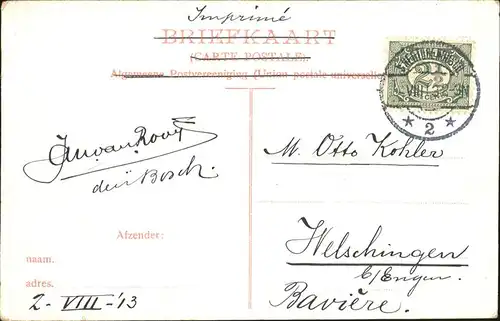 Imprimé
BRIEFKAART
(CARTE POSTALE)
Algemeene Postvereeniging (Union postale universelle)
2½
VIII
2
den Bosch.
M. Otto Kohler
Welschingen
b/Engen
Bavière.
Afzender:
naam.
adres.
2-VIII-'13